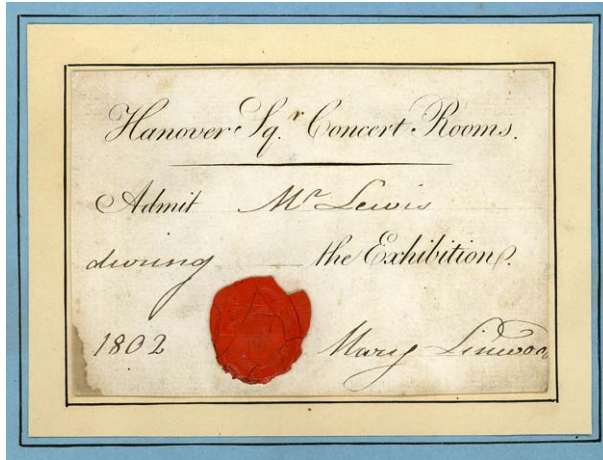 Hanover Sq.r Concert Rooms.
Admit Mr Lewis
during the Exhibition.
1802 Mary Linwood